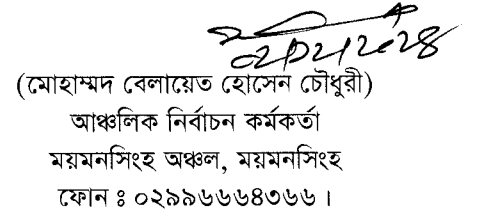 (মোহাম্মদ বেলায়েত হোসেন চৌধুরী)
আঞ্চলিক নির্বাচন কর্মকর্তা
ময়মনসিংহ অঞ্চল, ময়মনসিংহ
ফোন ঃ ০২৯৯৬৬৬৪৩৬৬ ।